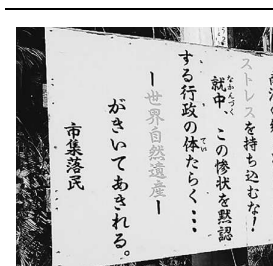 ストレスを持ち込むな!
就中、この惨状を黙認
なかんづく
する行政の体たらく…
てい
ー世界自然遺産ー
がきいてあきれる。
市集落民